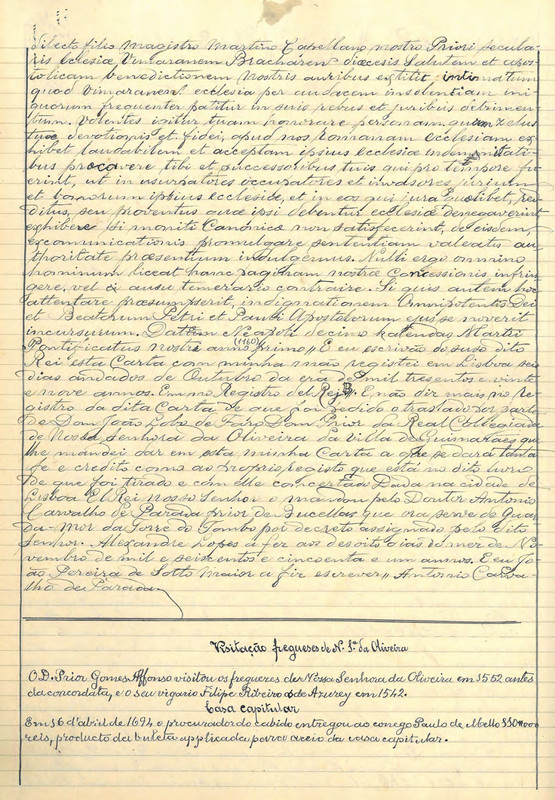 dilecto filio magistro Martino Castellano nostro Priori secula-
ris eclesiæ Vimaranem Bracharem diœcesis Salutem et apos-
tolicam benedictionem Nostris auribus extitit intimatum
quod Vimaranem ecclesia per audacem insolentiam ini-
quorum frequenter patitur in suis rebus et juribus detrimen-
tum. Volentes igitur tuam honorare personam quem zelus
tuæ devotionis et fidei, apud nos Romanam ecclesiam ex-
hibet laudabilem et acceptam ipsius ecclesiæ indemnitati-
bus procavere, tibi et successoribus tuis qui pro tempore fu-
erint, ut in usurpatores occupatores et invasores jurium
et bonorum ipsius ecclesiæ, et in eos qui jura quælibet, red-
ditus, seu proventus quæ ipsi debentur ecclesiæ denegaverint
exhibere si moniti Canónica non satisfecerint, de eisdem,
excomunicationis promulgare sententiam valeatis au-
thoritate præsentium indulgemus. Nulli ergo omnino
hominum liceat hanc paginam nostræ Concessionis infrin-
gere, vel ei ausu temerario contraire. Si quis autem hoc
attentare præsumpserit, indignationem Omnipotentis Dei
et Beatorum Petri et Pauli Apostolorum ejus se noverit
incursurum. Dattum Neapoli decimo kalendas Martii
Pontificatus nostri anno primo,, E eu escrivão do suso dito
(1160)
Rei esta Carta com minha mão registei em Lisboa seis
dias andados de Outubro da era de mil tresentos e vinte
e nove annos. Em no Registro del Rei,, E não diz mais no re-
gistro da dita Carta de que foi pedido o traslado por parte
de Dom João Lobo de Faro Dom Prior da Real Collegiada
de Nossa Senhora da Oliveira da Villa de Guimarães que
lhe mandei dar em esta minha Carta a que se dara tanta
fe e credito como ao proprio registo que está no dito livro
de que foi tirado e com elle concertado Dada na cidade de
Lisboa El Rei nosso Senhor o mandou pelo Doutor Antonio
Carvalho de Parada prior de Bucellas que ora serve de Guar-
da-Mor da Torre do Tombo por decreto assignado pelo dito
Senhor. Alexandre Lopes a fez aos desoito dias do mez de No-
vembro de mil e seiscentos e cincoenta e um annos. E eu Jo-
ão Pereira de Sotto maior a fiz escrever,, Antonio Carva-
lho de Parada
Visitação freguezes de N. Sra da Oliveira
O D. Prior Gomes Affonso visitou os freguezes de Nossa Senhora da Oliveira em 1552 antes
da concordata, e o seu vigario Filipe Ribeiro o de Azurey em 1542.
Casa capitular
Em 16 d'abril de 1694 o procurador do cabido entregou ao conego Paulo de Mello
reis, producto da buleta applicada para o aceio da casa capitular.